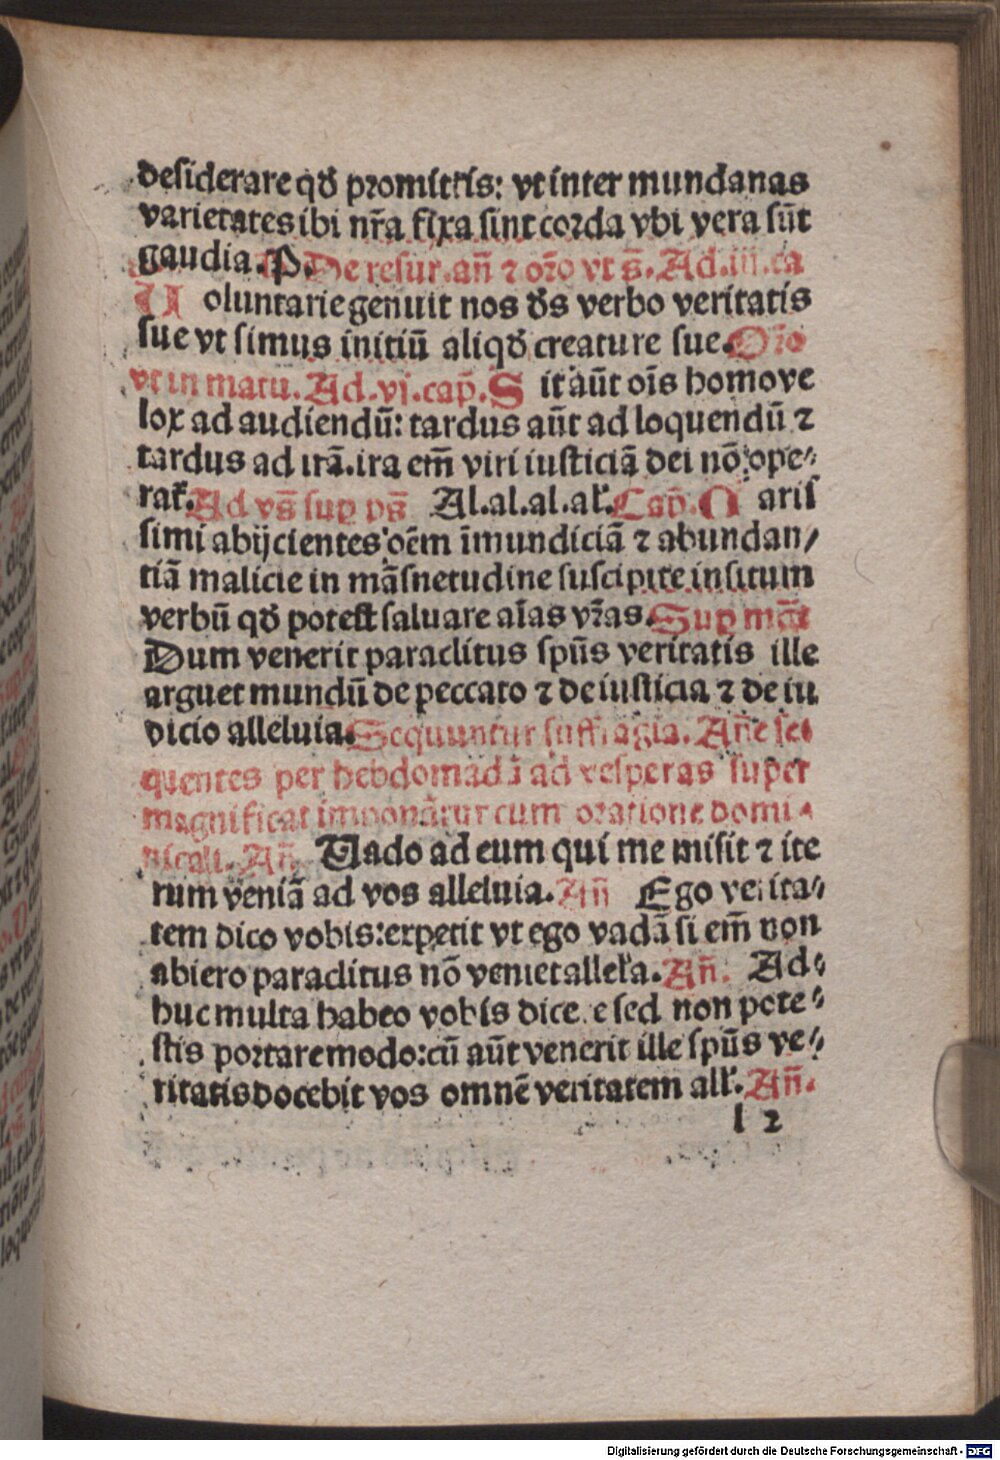 desiderare qđ promittis: vt inter mundanas
varietates ibi nr̃a fixa sint corda vbi vera sũt
gaudia. P. De resur. añ ⁊ or̃o vt s̃. Ad .iij. ca
Uoluntarie genuit nos ds̃ verbo veritatis
sue vt simus initiũ aliqđ creature sue. Or̃o
vt in matu. Ad .vj. cap̃. Sit aũt oĩs homo ve
lox ad audiendũ: tardus aũt ad loquendũ ⁊
tardus ad irã. ira em̃ viri iusticiã dei nõ ope⸗
rat̃. Ad vs̃ sup ps̃ Al.al.al.al̃. Cap̃. C aris
simi abijcientes oẽm ĩmundiciã ⁊ abundan/
tiã malicie in mãsnetudine suscipite insitum
verbũ qđ potest saluare aĩas vr̃as. Sup mãt
Dum venerit paraclitus spũs veritatis ille
arguet mundũ de peccato ⁊ de iusticia ⁊ de iu
dicio alleluia. Sequuntur suffragia. Añe se
quentes per hebdomadã ad vesperas super
magnificat imponãtur cum oratione domi⸗
nicali. Añ. Uado ad eum qui me misit ⁊ ite
rum veniã ad vos alleluia. Añ Ego verita⸗
tem dico vobis: expetit vt ego vadã si em̃ non
abiero paraclitus nõ veniet allel̃a. Añ. Ad⸗
huc multa habeo vobis dicere sed non pote⸗
stis portare modo: cũ aũt venerit ille spũs ve⸗
ritatis docebit vos omnẽ veritatem all̃. Añ.
l 2
Digitalisierung gefördert durch die Deutsche Forschungsgemeinschaft - DFG